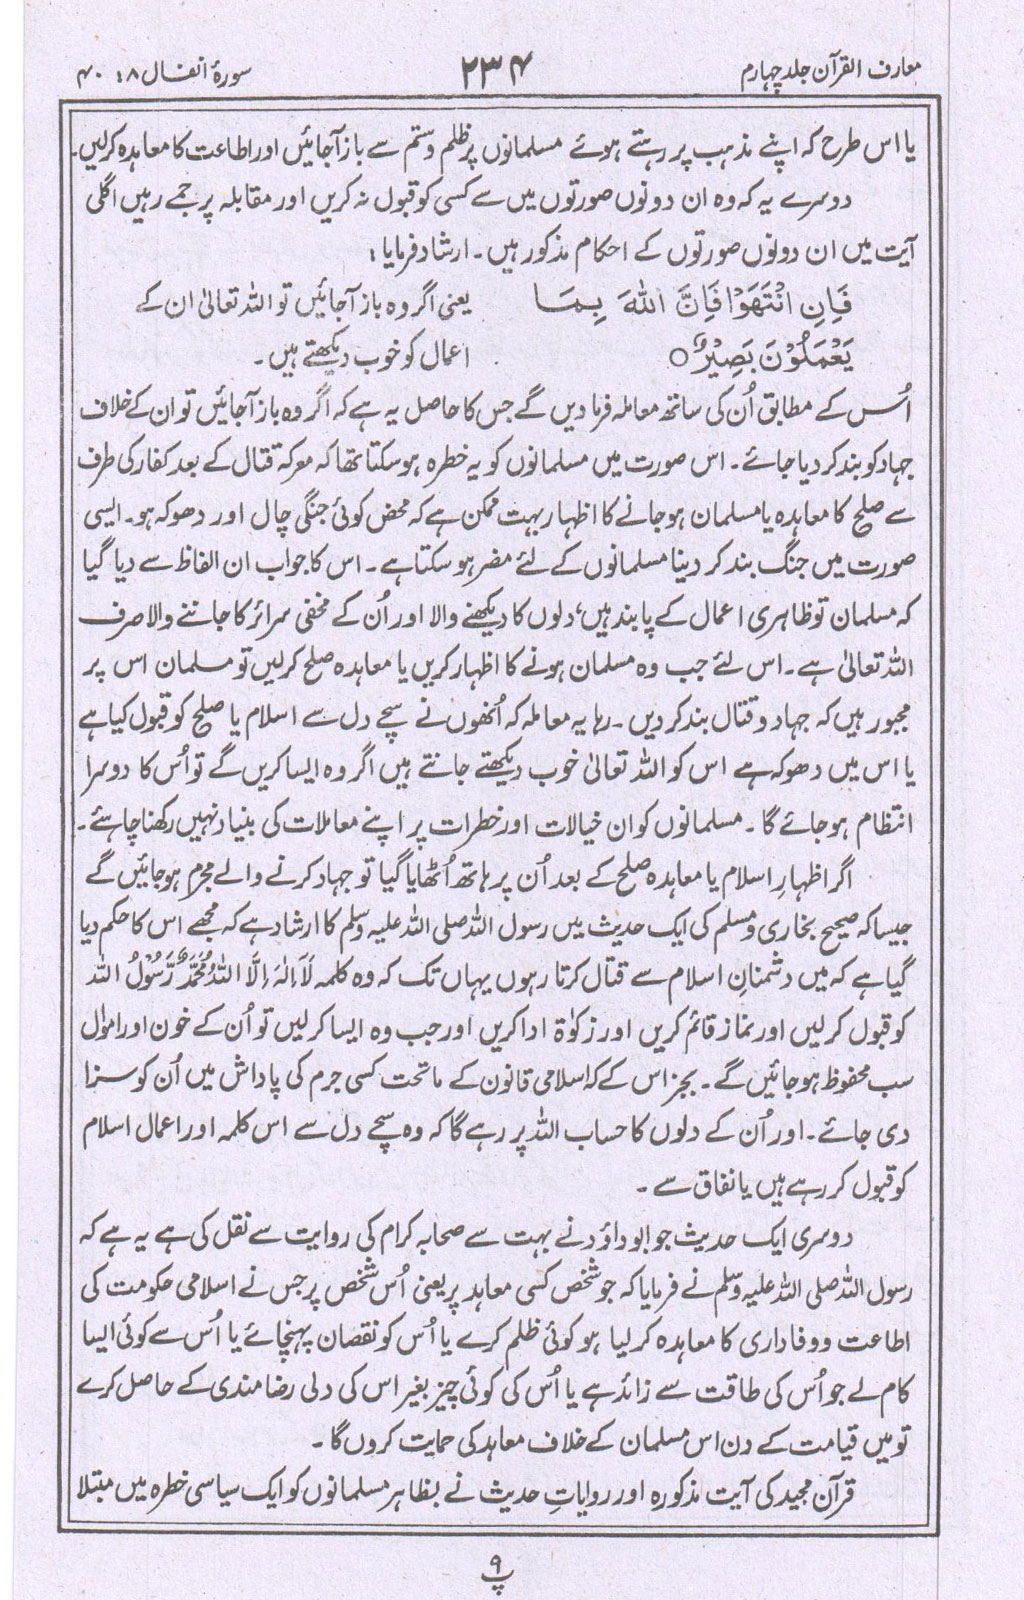 معارف القرآن جلد چہارم
۲۳۴
سورۂ انفال ۸ : ۴۰
یا اس طرح کہ اپنے مذہب پر رہتے ہوئے مسلمانوں پر ظلم و ستم سے باز آجائیں اور اطاعت کا معاہدہ کرلیں۔
دوسرے یہ کہ وہ ان دونوں صورتوں میں سے کسی کو قبول نہ کریں اور مقابلہ پر جمے رہیں اگلی
آیت میں ان دونوں صورتوں کے احکام مذکور ہیں۔ ارشاد فرمایا:
فَاِنِ انْتَهَوْا فَاِنَّ اللّٰهَ بِمَا
یَعْمَلُوْنَ بَصِیْرٌ○
یعنی اگر وہ باز آجائیں تو اللہ تعالیٰ ان کے
اعمال کو خوب دیکھتے ہیں۔
اُس کے مطابق اُن کی ساتھ معاملہ فرمادیں گے جس کا حاصل یہ ہے کہ اگر وہ باز آجائیں تو ان کے خلاف
جہاد کو بند کر دیا جائے۔ اس صورت میں مسلمانوں کو یہ خطرہ ہوسکتا تھا کہ معرکہ قتال کے بعد کفار کی طرف
سے صلح کا معاہدہ یا مسلمان ہوجانے کا اظہار بہت ممکن ہے کہ محض کوئی جنگی چال اور دھوکہ ہو۔ ایسی
صورت میں جنگ بند کر دینا مسلمانوں کے لئے مضر ہوسکتا ہے۔ اس کا جواب ان الفاظ سے دیا گیا
کہ مسلمان تو ظاہری اعمال کے پابند ہیں، دلوں کا دیکھنے والا اور اُن کے مخفی سرائر کا جاننے والا صرف
اللہ تعالیٰ ہے۔ اس لئے جب وہ مسلمان ہونے کا اظہار کریں یا معاہدہ صلح کرلیں تو مسلمان اس پر
مجبور ہیں کہ جہاد و قتال بند کردیں۔ رہا یہ معاملہ کہ اُنھوں نے سچے دل سے اسلام یا صلح کو قبول کیا ہے
یا اس میں دھوکہ ہے اس کو اللہ تعالیٰ خوب دیکھتے جانتے ہیں اگر وہ ایسا کریں گے تو اُس کا دوسرا
انتظام ہوجائے گا۔ مسلمانوں کو ان خیالات اور خطرات پر اپنے معاملات کی بنیاد نہیں رکھنا چاہئے۔
اگر اظہارِ اسلام یا معاہدہ صلح کے بعد اُن پر ہاتھ اُٹھایا گیا تو جہاد کرنے والے مجرم ہوجائیں گے
جیسا کہ صحیح بخاری و مسلم کی ایک حدیث میں رسول اللہ صلی اللہ علیہ وسلم کا ارشاد ہے کہ مجھے اس کا حکم دیا
گیا ہے کہ میں دشمنانِ اسلام سے قتال کرتا رہوں یہاں تک کہ وہ کلمہ لَآ اِلٰہَ اِلَّا اللّٰہُ مُحَمَّدٌ رَّسُوْلُ اللّٰہ
کو قبول کرلیں اور نماز قائم کریں اور زکوٰۃ ادا کریں اور جب وہ ایسا کرلیں تو اُن کے خون اور اموال
سب محفوظ ہوجائیں گے۔ بجز اس کے کہ اسلامی قانون کے ماتحت کسی جرم کی پاداش میں اُن کو سزا
دی جائے۔ اور اُن کے دلوں کا حساب اللہ پر رہے گا کہ وہ سچے دل سے اس کلمہ اور اعمال اسلام
کو قبول کر رہے ہیں یا نفاق سے۔
دوسری ایک حدیث جو ابوداؤد نے بہت سے صحابہ کرام کی روایت سے نقل کی ہے یہ ہے کہ
رسول اللہ صلی اللہ علیہ وسلم نے فرمایا کہ جو شخص کسی معاہد پر یعنی اُس شخص پر جس نے اسلامی حکومت کی
اطاعت و وفاداری کا معاہدہ کرلیا ہو کوئی ظلم کرے یا اُس کو نقصان پہنچائے یا اُس سے کوئی ایسا
کام لے جو اُس کی طاقت سے زائد ہے یا اُس کی کوئی چیز بغیر اس کی دلی رضامندی کے حاصل کرے
تو میں قیامت کے دن اس مسلمان کے خلاف معاہد کی حمایت کروں گا۔
قرآن مجید کی آیت مذکورہ اور روایاتِ حدیث نے بظاہر مسلمانوں کو ایک سیاسی خطرہ میں مبتلا
۹
پ